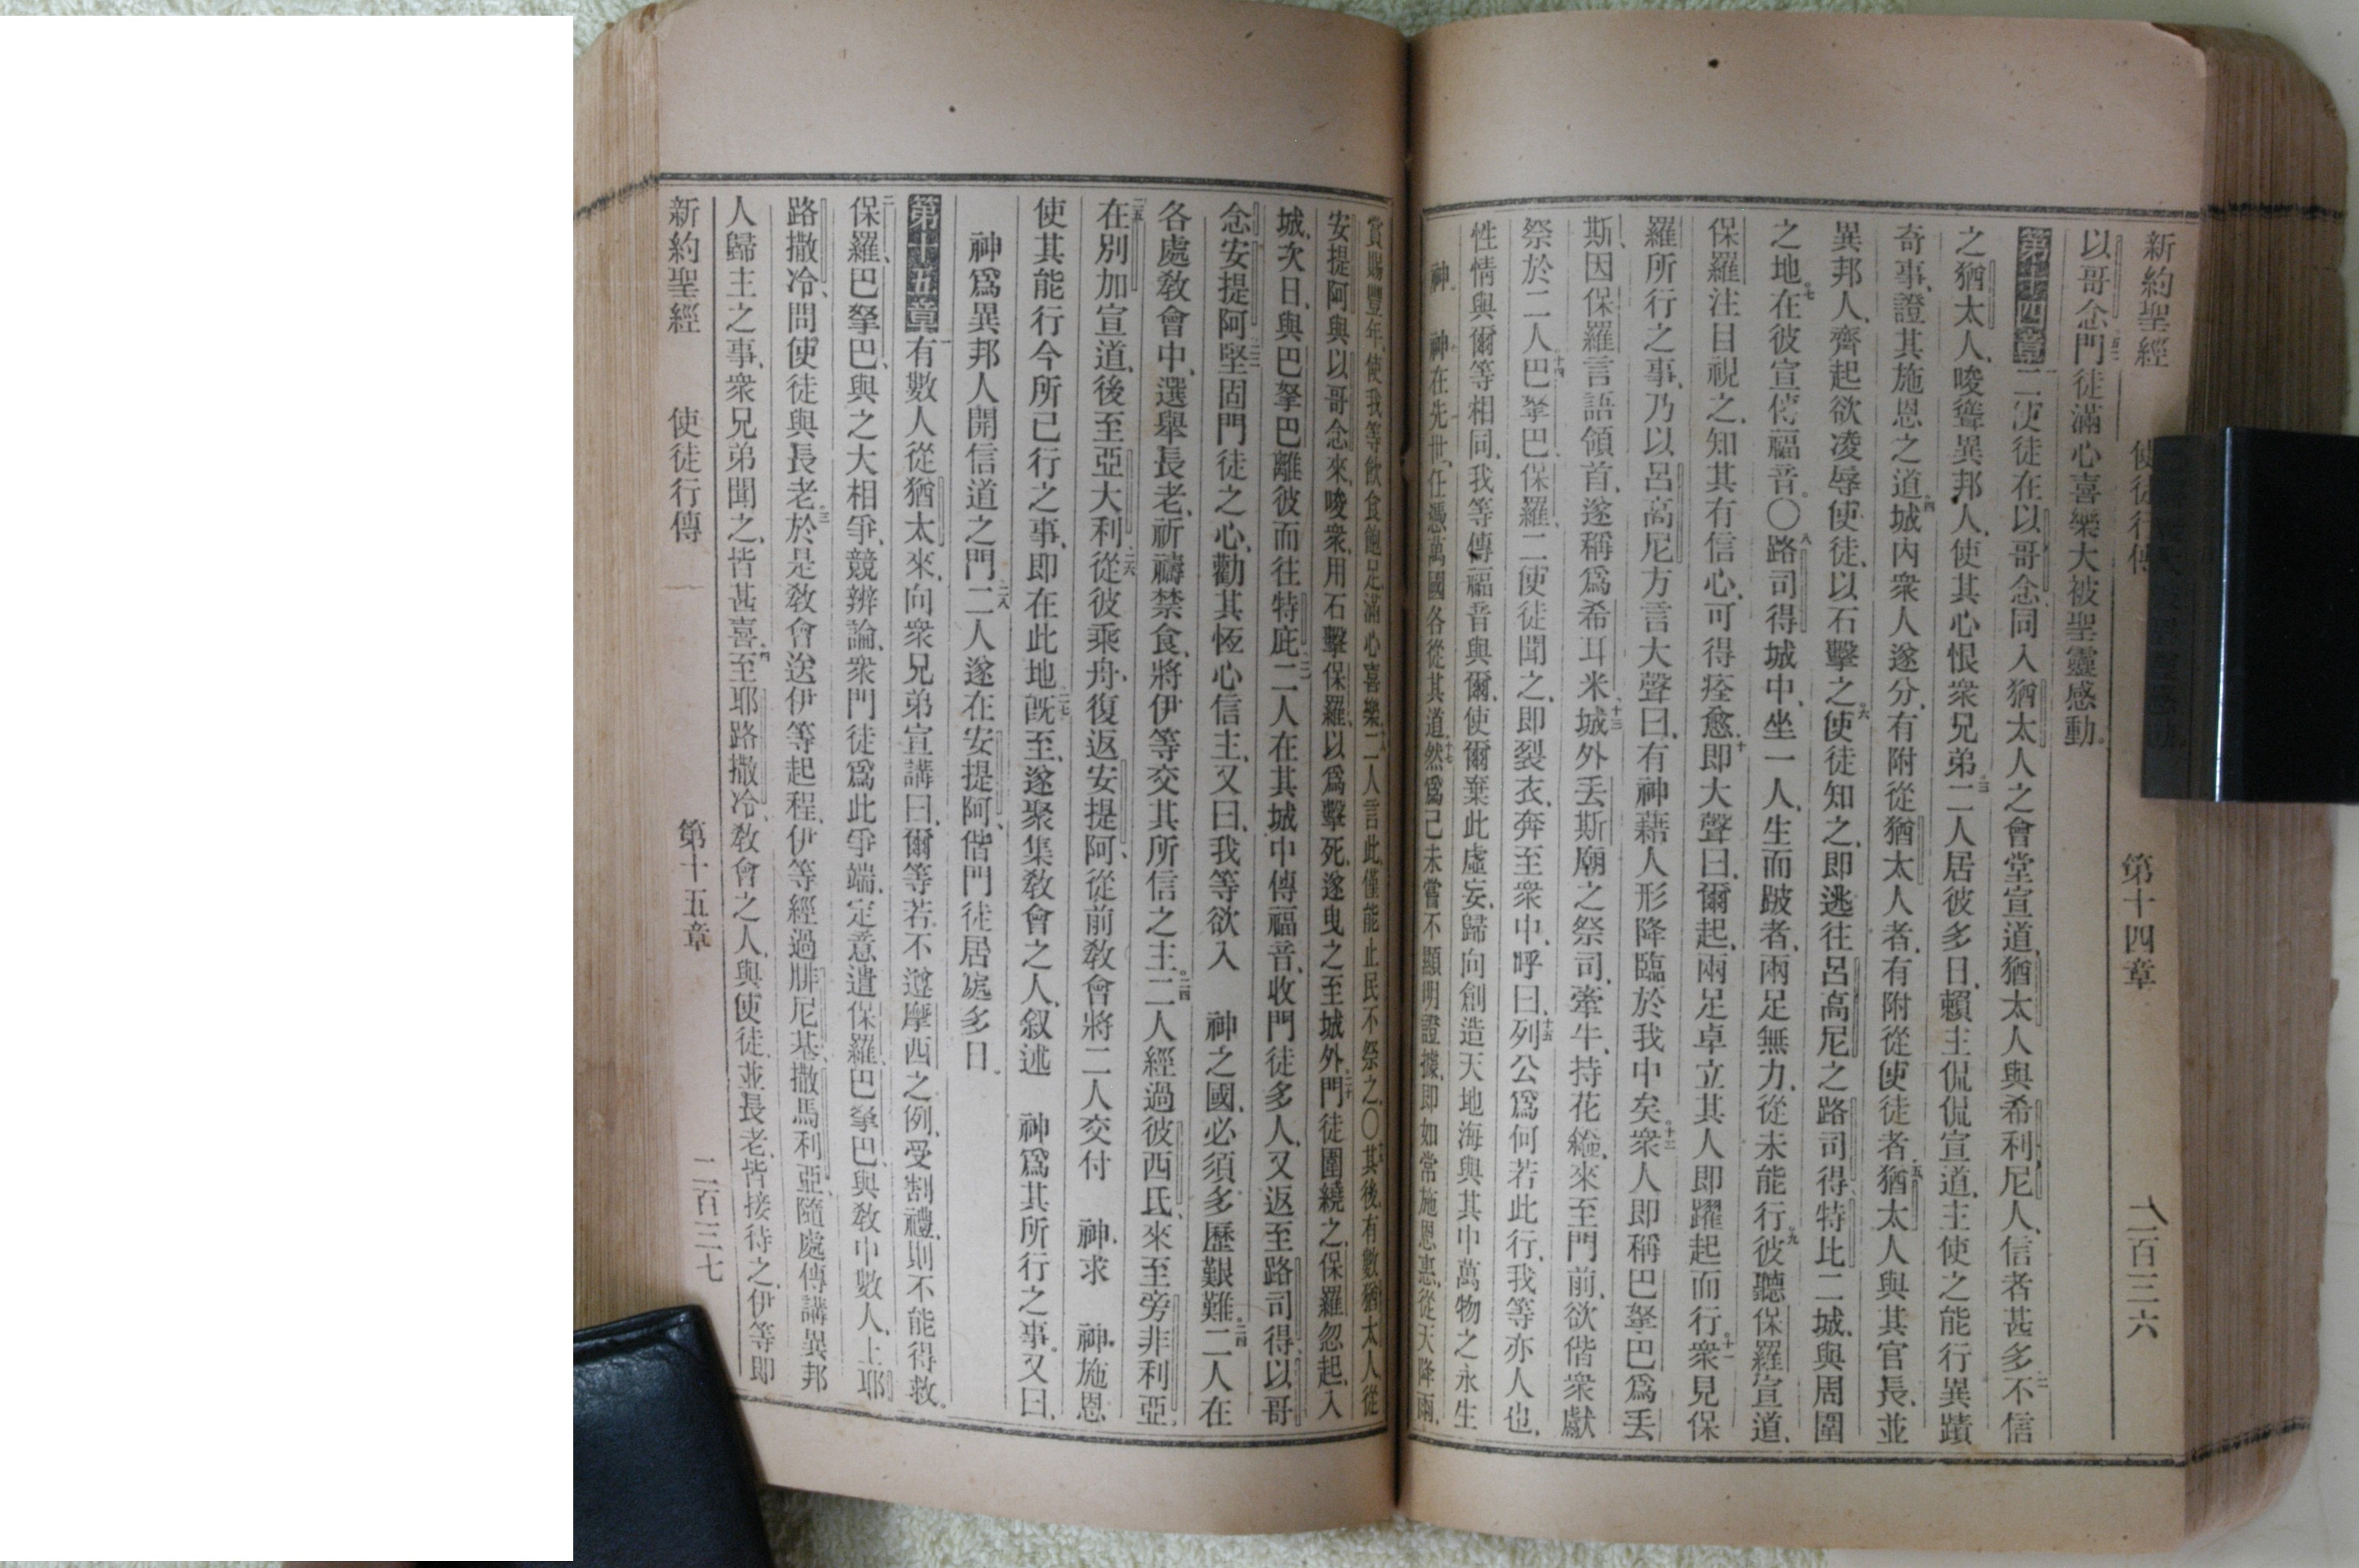 新約聖經 使徒行傳 第十四章 二百三六
以哥念門徒滿心喜樂大被聖靈感動。
第十四章 二使徒在以哥念、同入猶太人之會堂宣道、猶太人與希利尼人、信者甚多、二不信
之猶太人、唆聳異邦人、使其心恨衆兄弟、三二人居彼多日、賴主侃侃宣道、主使之能行異蹟
奇事、證其施恩之道、四城內衆人遂分、有附從猶太人者、有附從使徒者、五猶太人與其官長、並
異邦人、齊起欲凌辱使徒、以石擊之、六使徒知之、即逃往呂高尼之路司得、特比二城、與周圍
之地、七在彼宣傳福音。〇八路司得城中、坐一人、生而跛者、兩足無力、從未能行、九彼聽保羅宣道、
保羅注目視之、知其有信心、可得痊愈、十即大聲曰、爾起、兩足卓立、其人即躍起而行、十一衆見保
羅所行之事、乃以呂高尼方言大聲曰、有神藉人形降臨於我中矣、十二衆人即稱巴拏巴爲丟
斯、因保羅言語領首、遂稱爲希耳米、十三城外丟斯廟之祭司、牽牛、持花繈、來至門前、欲偕衆獻
祭於二人、十四巴拏巴、保羅、二使徒聞之、即裂衣、奔至衆中、呼曰、十五列公爲何若此行、我等亦人也、
性情與爾等相同、我等傳福音與爾、使爾棄此虛妄、歸向創造天地海與其中萬物之永生
神 神在先世、任憑萬國各從其道、十七然爲己未嘗不顯明證據、即如常施恩惠、從天降雨、
賞賜豐年、使我等飲食飽足、滿心喜樂、二人言此、僅能止民不祭之、〇其後、有數猶太人從
安提阿與以哥念來、唆衆、用石擊保羅、以爲擊死、遂曳之至城外、二十門徒圍繞之、保羅忽起、入
城、次日、與巴拏巴離彼而往特庇、二人在其城中傳福音、收門徒多人、又返至路司得、以哥
念、安提阿、堅固門徒之心、勸其恆心信主、又曰、我等欲入 神之國、必須多歷艱難、二人在
各處敎會中、選舉長老、祈禱禁食、將伊等交其所信之主。二四二人經過彼西氏、來至旁非利亞、
二五在別加宣道、後至亞大利、二六從彼乘舟、復返安提阿、從前敎會將二人交付 神、求 神施恩、
使其能行今所已行之事、即在此地、二七既至、遂聚集敎會之人、叙述 神爲其所行之事。又曰、
神爲異邦人開信道之門、二八二人遂在安提阿、偕門徒居處多日。
第十五章 一有數人從猶太來、向衆兄弟宣講曰、爾等若不遵摩西之例、受割禮、則不能得救。
二保羅、巴拏巴、與之大相爭競辨論、衆門徒爲此爭端、定意遣保羅、巴拏巴、與敎中數人、上耶
路撒冷、問使徒與長老、三於是敎會送伊等起程、伊等經過腓尼基、撒馬利亞、隨處傳講異邦
人歸主之事、衆兄弟聞之、皆甚喜、四至耶路撒冷、敎會之人、與使徒、並長老、皆接待之、伊等即
新約聖經 使徒行傳 第十五章 二百三七